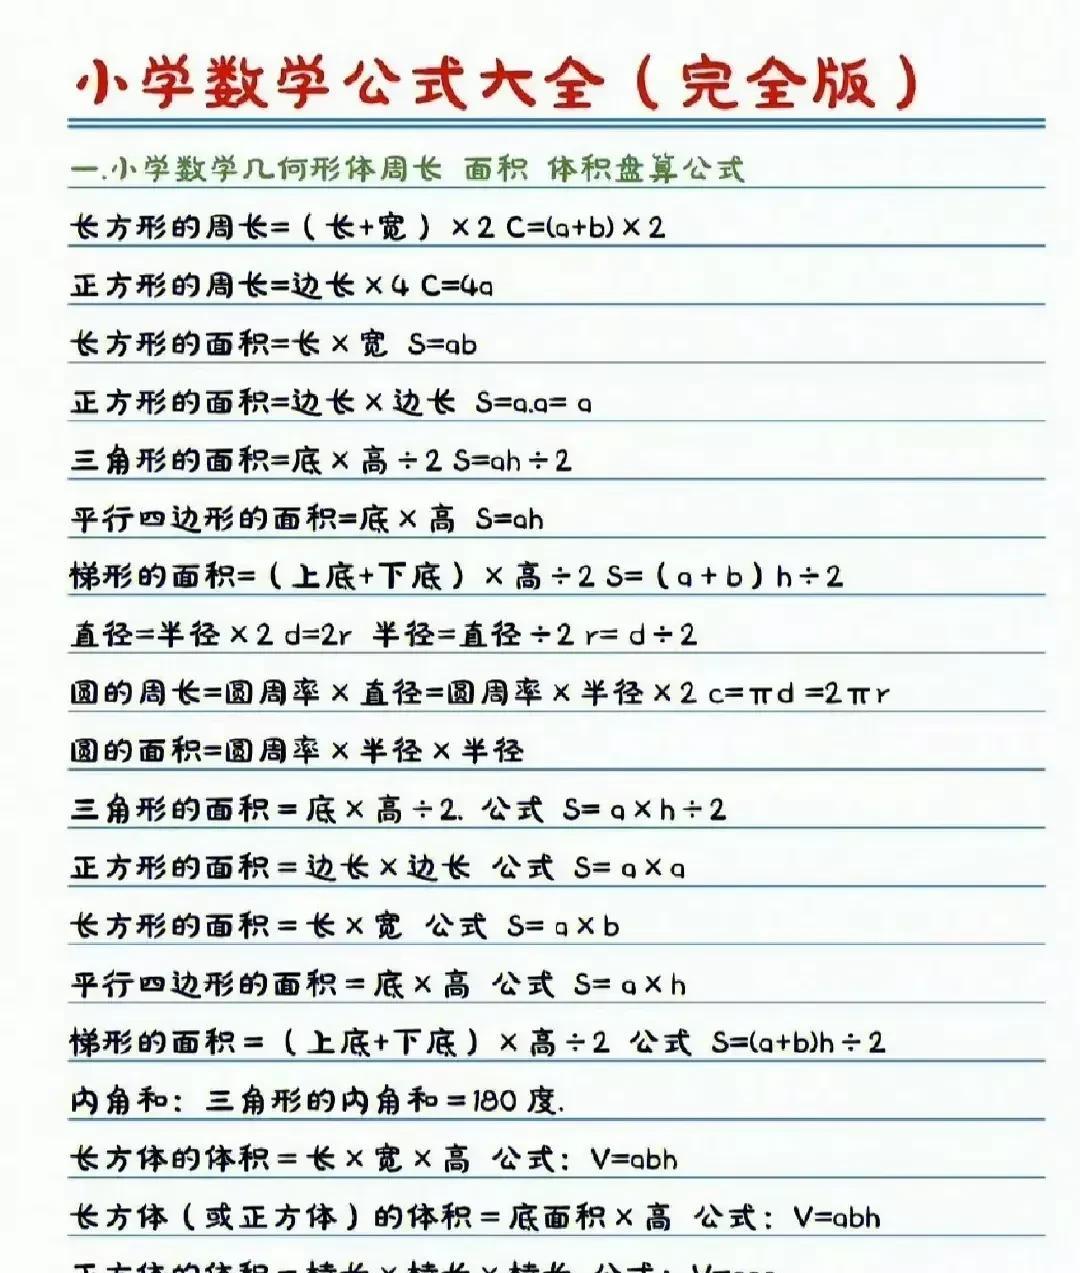 小学数学公式大全（完全版）
一.小学数学几何形体周长 面积 体积盘算公式
长方形的周长=（长+宽）×2 C=(a+b)×2
正方形的周长=边长×4 C=4a
长方形的面积=长×宽 S=ab
正方形的面积=边长×边长 S=a.a= a
三角形的面积=底×高÷2 S=ah÷2
平行四边形的面积=底×高 S=ah
梯形的面积=（上底+下底）×高÷2 S=（a+b）h÷2
直径=半径×2 d=2r 半径=直径÷2 r= d÷2
圆的周长=圆周率×直径=圆周率×半径×2 c=πd =2πr
圆的面积=圆周率×半径×半径
三角形的面积＝底×高÷2. 公式 S= a×h÷2
正方形的面积＝边长×边长 公式 S= a×a
长方形的面积＝长×宽 公式 S= a×b
平行四边形的面积＝底×高 公式 S= a×h
梯形的面积＝（上底+下底）×高÷2 公式 S=(a+b)h÷2
内角和：三角形的内角和＝180度.
长方体的体积＝长×宽×高 公式：V=abh
长方体（或正方体）的体积＝底面积×高 公式：V=abh
正方体的体积＝棱长×棱长×棱长 公式：V=aaa